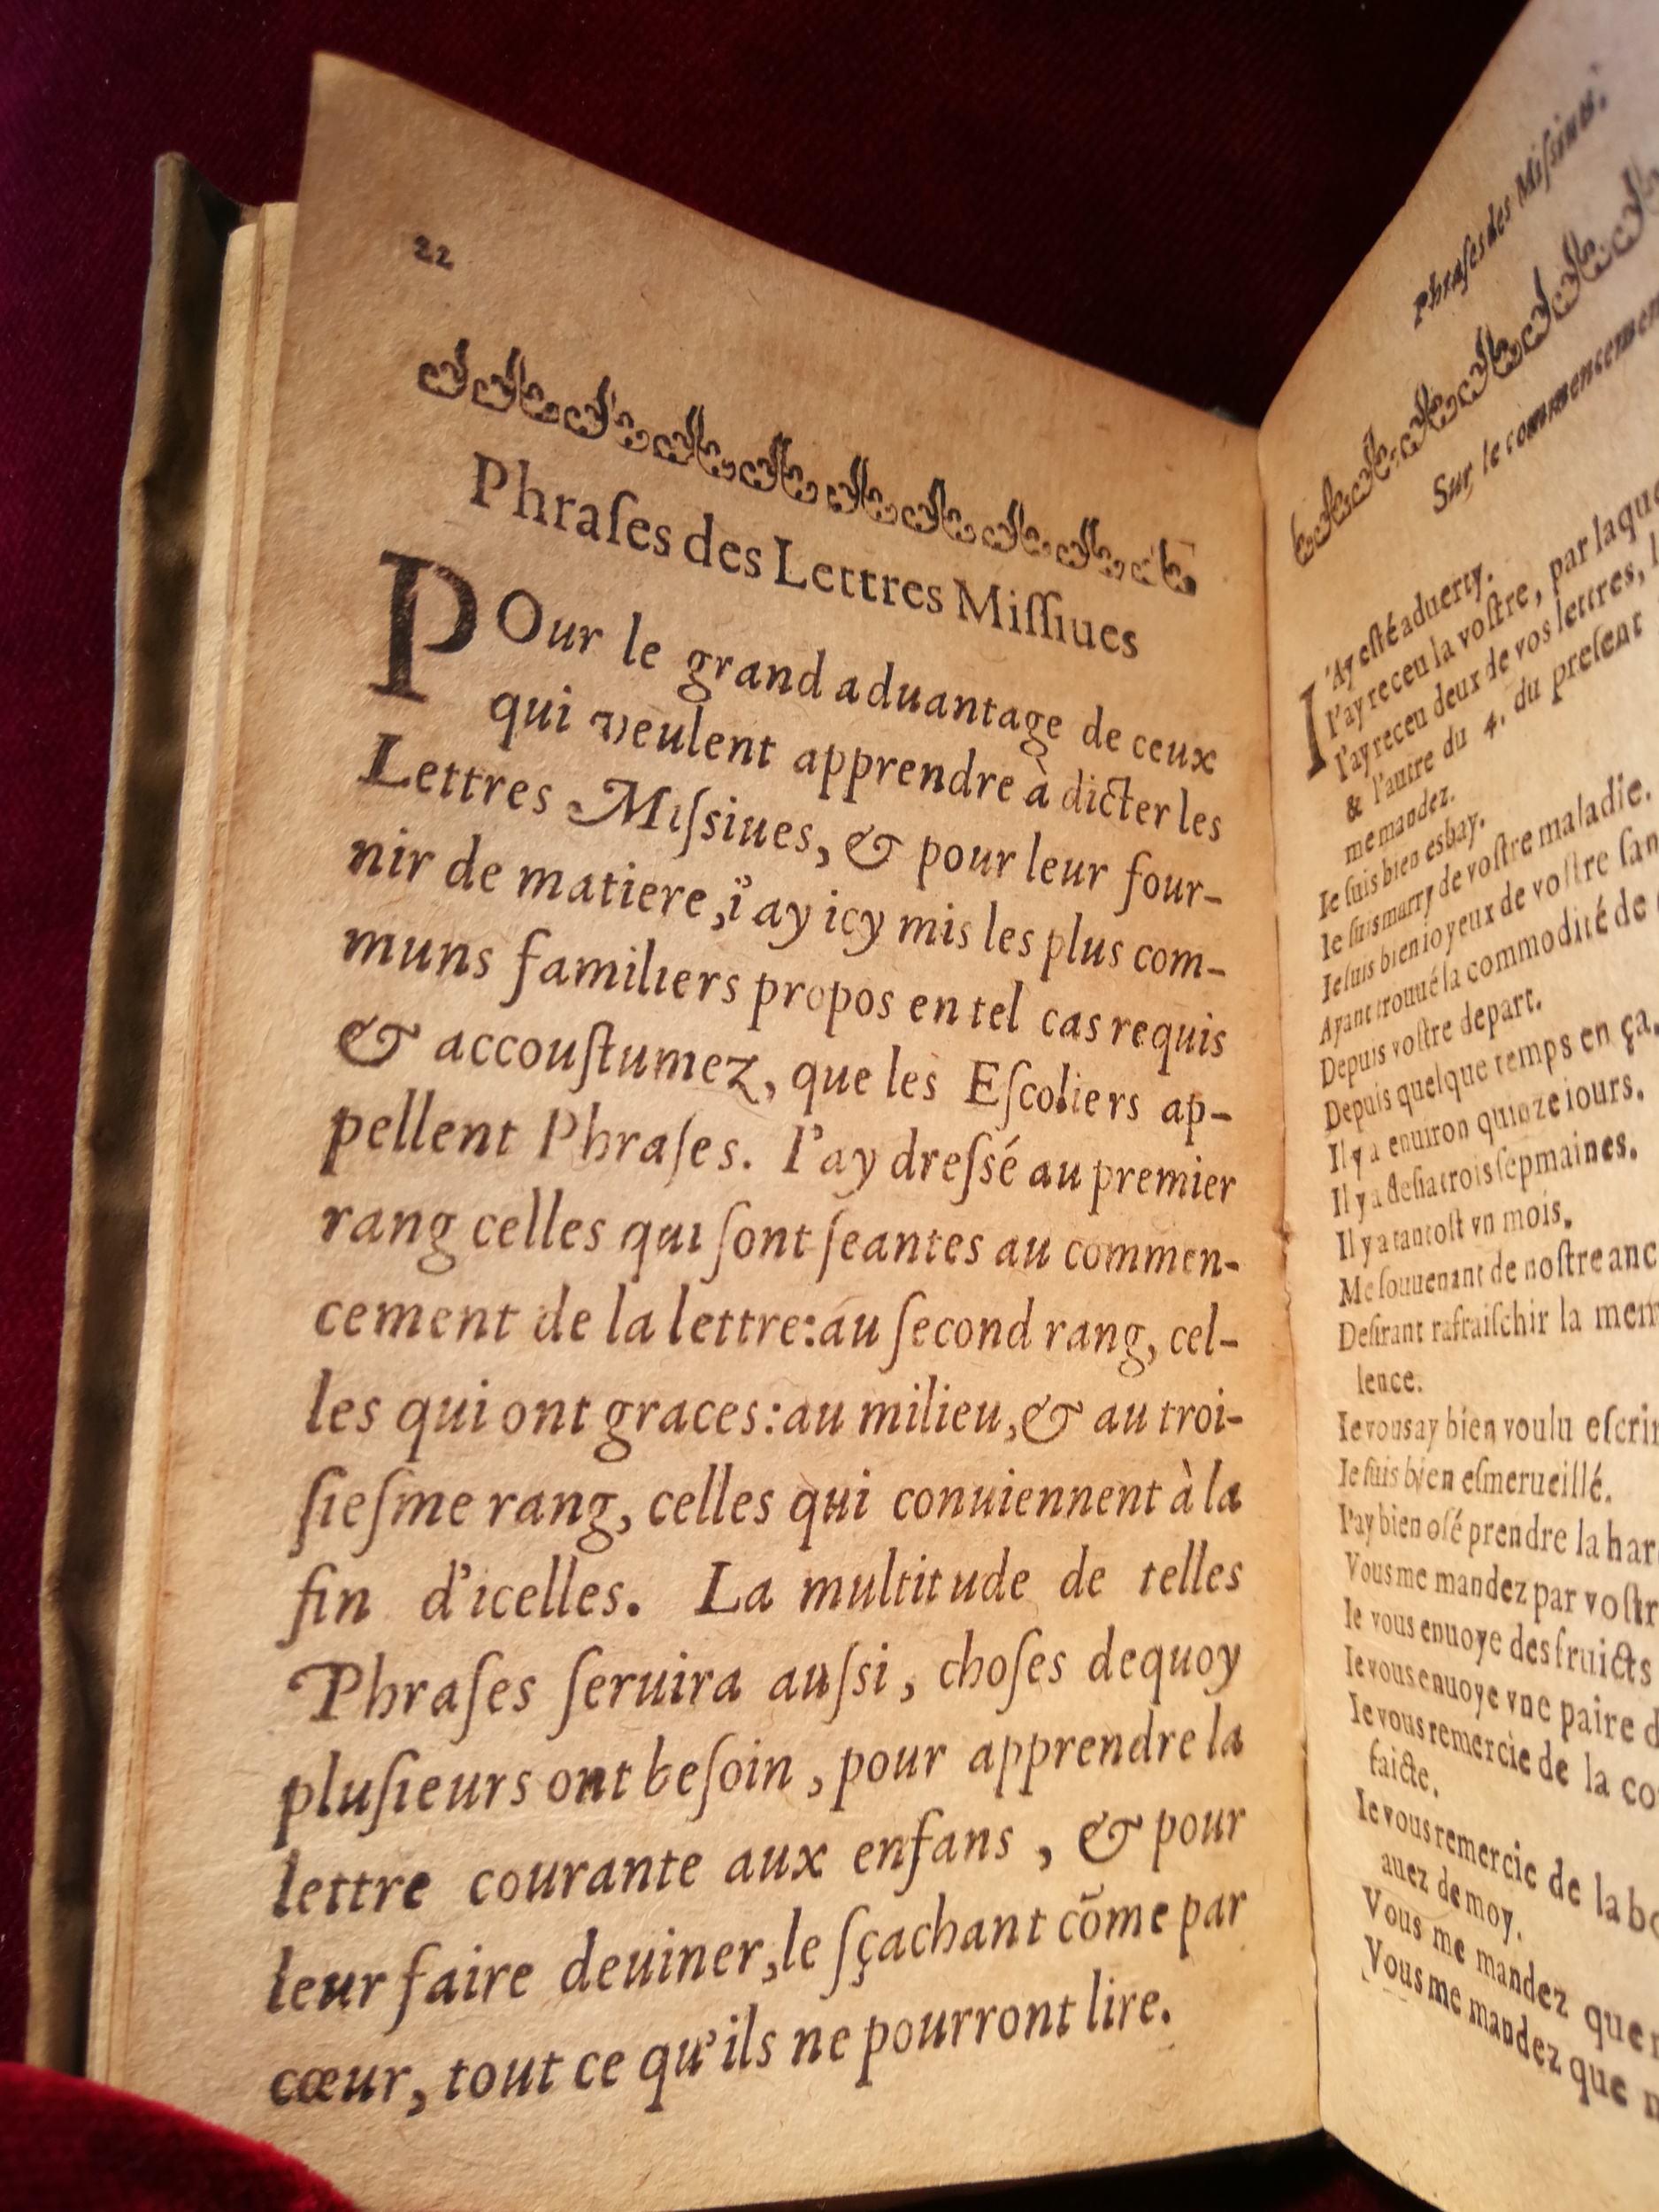 22
Phraſes des Lettres Miſſiues
POur le grand aduantage de ceux
qui veulent apprendre à dicter les
Lettres Miſsiues, & pour leur four-
nir de matiere, i'ay icy mis les plus com-
muns familiers propos en tel cas requis
& accouſtumez, que les Eſcoliers ap-
pellent Phraſes. I'ay dreſsé au premier
rang celles qui ſont ſeantes au commen-
cement de la lettre: au ſecond rang, cel-
les qui ont graces: au milieu, & au troi-
ſieſme rang, celles qui conuiennent à la
fin d'icelles. La multitude de telles
Phraſes ſeruira auſsi, choſes dequoy
pluſieurs ont beſoin, pour apprendre la
lettre courante aux enfans, & pour
leur faire deuiner, le ſçachant cõme par
cœur, tout ce qu'ils ne pourront lire.
Phraſes des Miſsiues.
Sur le commencement
I'Ay eſté aduerty.
I'ay receu la voſtre, par laque
I'ay receu deux de vos lettres,
& l'autre du 4. du preſent
me mandez.
Ie ſuis bien esbay.
Ie ſuis marry de voſtre maladie.
Ie ſuis bien ioyeux de voſtre ſan
Ayant trouué la commodité de
Depuis voſtre depart.
Depuis quelque temps en ça.
Il y a enuiron quinze iours.
Il y a deſia trois ſepmaines.
Il y a tantoſt vn mois.
Me ſouuenant de noſtre anc
Deſirant rafraiſchir la mem
lence.
Ie vous ay bien voulu eſcrir
Ie ſuis bien eſmerueillé.
I'ay bien oſé prendre la har
Vous me mandez par voſtr
Ie vous enuoye des fruicts
Ie vous enuoye vne paire d
Ie vous remercie de la co
faicte.
Ie vous remercie de la bo
auez de moy.
Vous me mandez que
Vous me mandez que